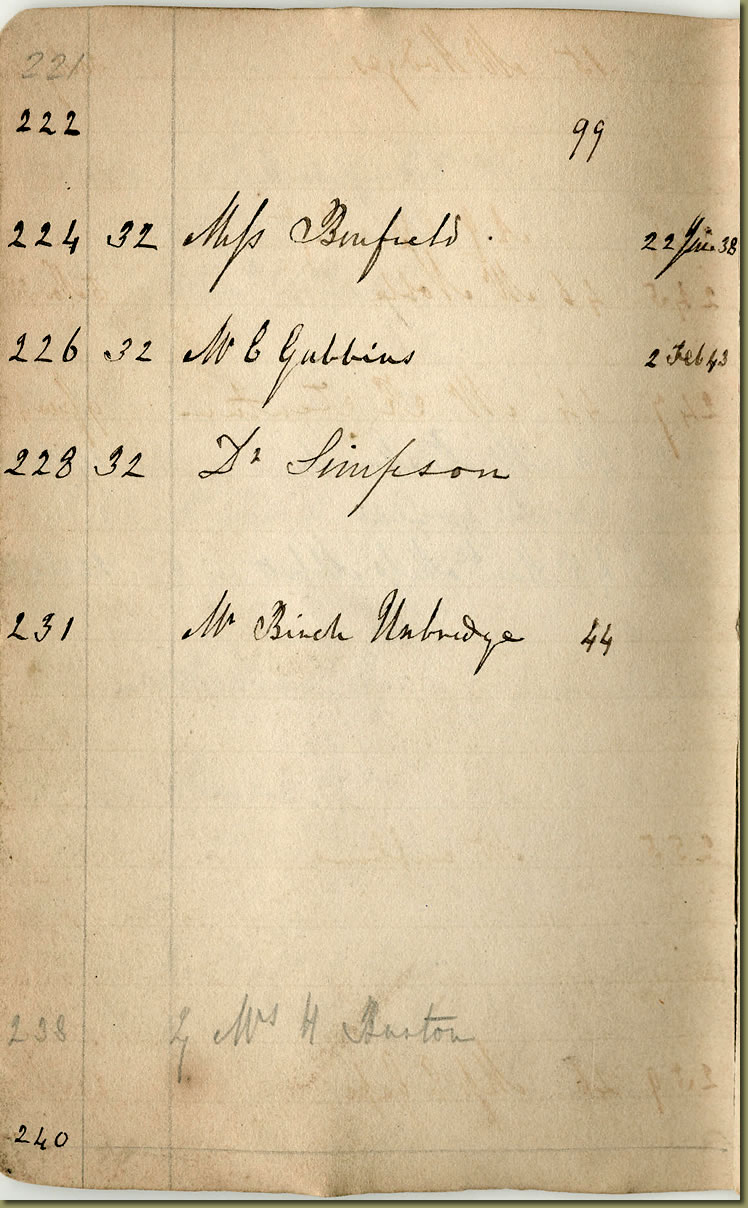 221
222 99
224 32 Miss Benfield . 22 June 38
226 32 Mr C Gubbins 2 Feb 43
228 32 Dr Simpson
231 Mr Birch Uxbridge 44
238 Mrs H Burton
240